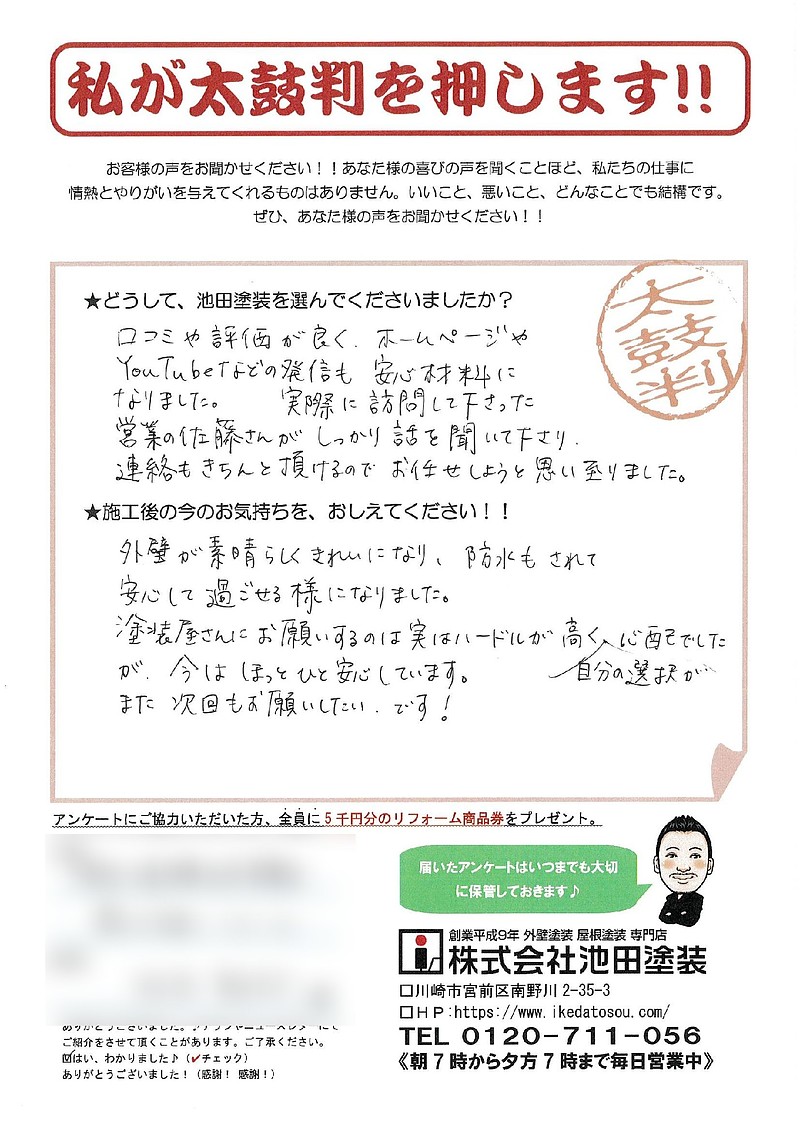 私が太鼓判を押します!!
お客様の声をお聞かせください！！あなた様の喜びの声を聞くことほど、私たちの仕事に
情熱とやりがいを与えてくれるものはありません。いいこと、悪いこと、どんなことでも結構です。
ぜひ、あなた様の声をお聞かせください！！
太鼓判
★どうして、池田塗装を選んでくださいましたか？
口コミや評価が良く、ホームページや
YouTubeなどの発信も 安心材料に
なりました。 実際に訪問して下さった
営業の佐藤さんが しっかり話を聞いて下さり、
連絡もきちんと頂けるので お任せしようと思い至りました。
★施工後の今のお気持ちを、おしえてください！！
外壁が素晴らしくきれいになり、防水もされて
安心して過ごせる様になりました。
塗装屋さんにお願いするのは実はハードルが高く、心配でした
が、今は ほっとひと安心しています。 自分の選択が
また次回もお願いしたい、です！
アンケートにご協力いただいた方、全員に5千円分のリフォーム商品券をプレゼント。
届いたアンケートはいつまでも大切
に保管しておきます♪
創業平成9年 外壁塗装 屋根塗装 専門店
株式会社池田塗装
□川崎市宮前区南野川 2-35-3
□ＨＰ:https://www.ikedatosou.com/
TEL 0120-711-056
《朝7時から夕方7時まで毎日営業中》
ご紹介をさせて頂くことがあります。ご了承ください。
☑はい、わかりました♪（✓チェック）
ありがとうございました！（感謝！感謝！）